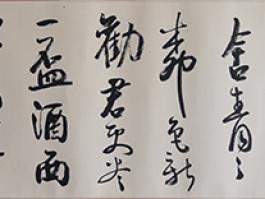 舍青青
柳色新
勸君更尽
一盃酒西